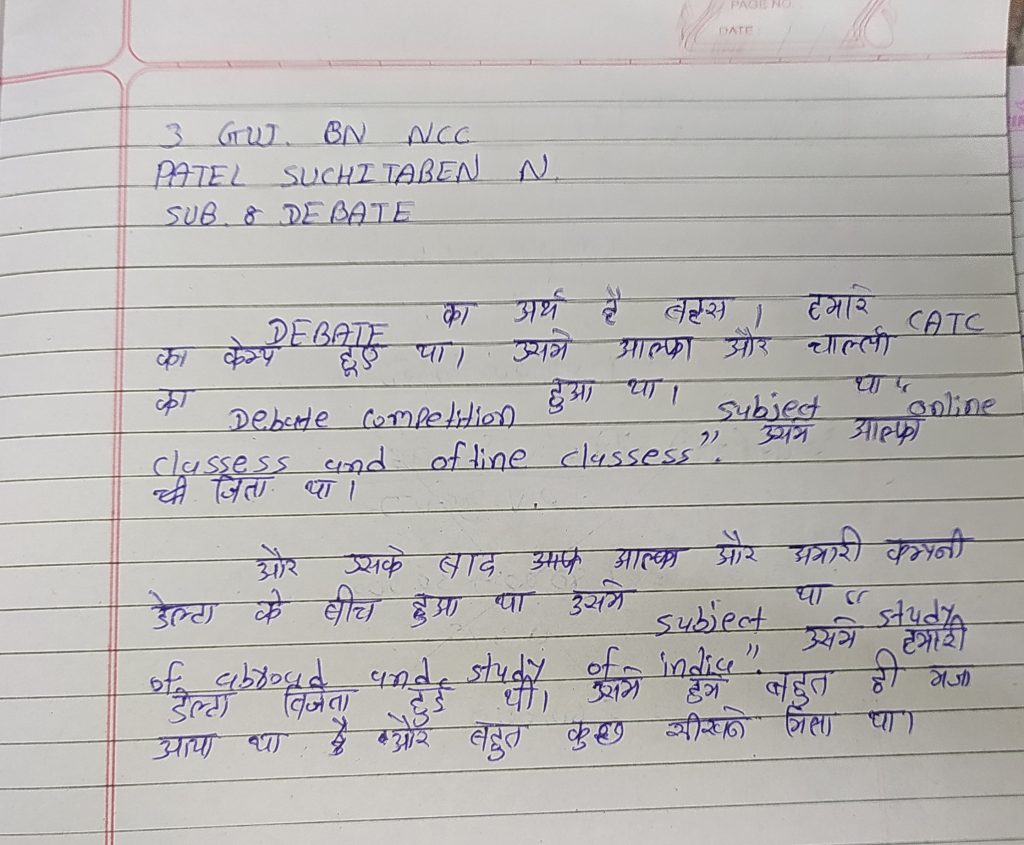 PAGE NO.
DATE
3 GUJ. BN NCC
PATEL SUCHITABEN N.
SUB. 8 DEBATE
DEBATE का अर्थ है बहस । हमारे CATC
का केम्प हूए था। उसमे आल्फा और चाल्ली
का Debate competition हुआ था। subject था " online
classess and ofline classess". उसमे आल्फा
थी जिता था।
और उसके बाद आल्फा और अमारी कम्पनी
डेल्टा के बीच हुआ था उसमे subject था " study
of abroad and study of india". उसमे हमारी
डेल्टा विजेता हुई थी। उसमे हमे बहुत ही मजा
आया था और बहुत कुछ सीखने मिला था।